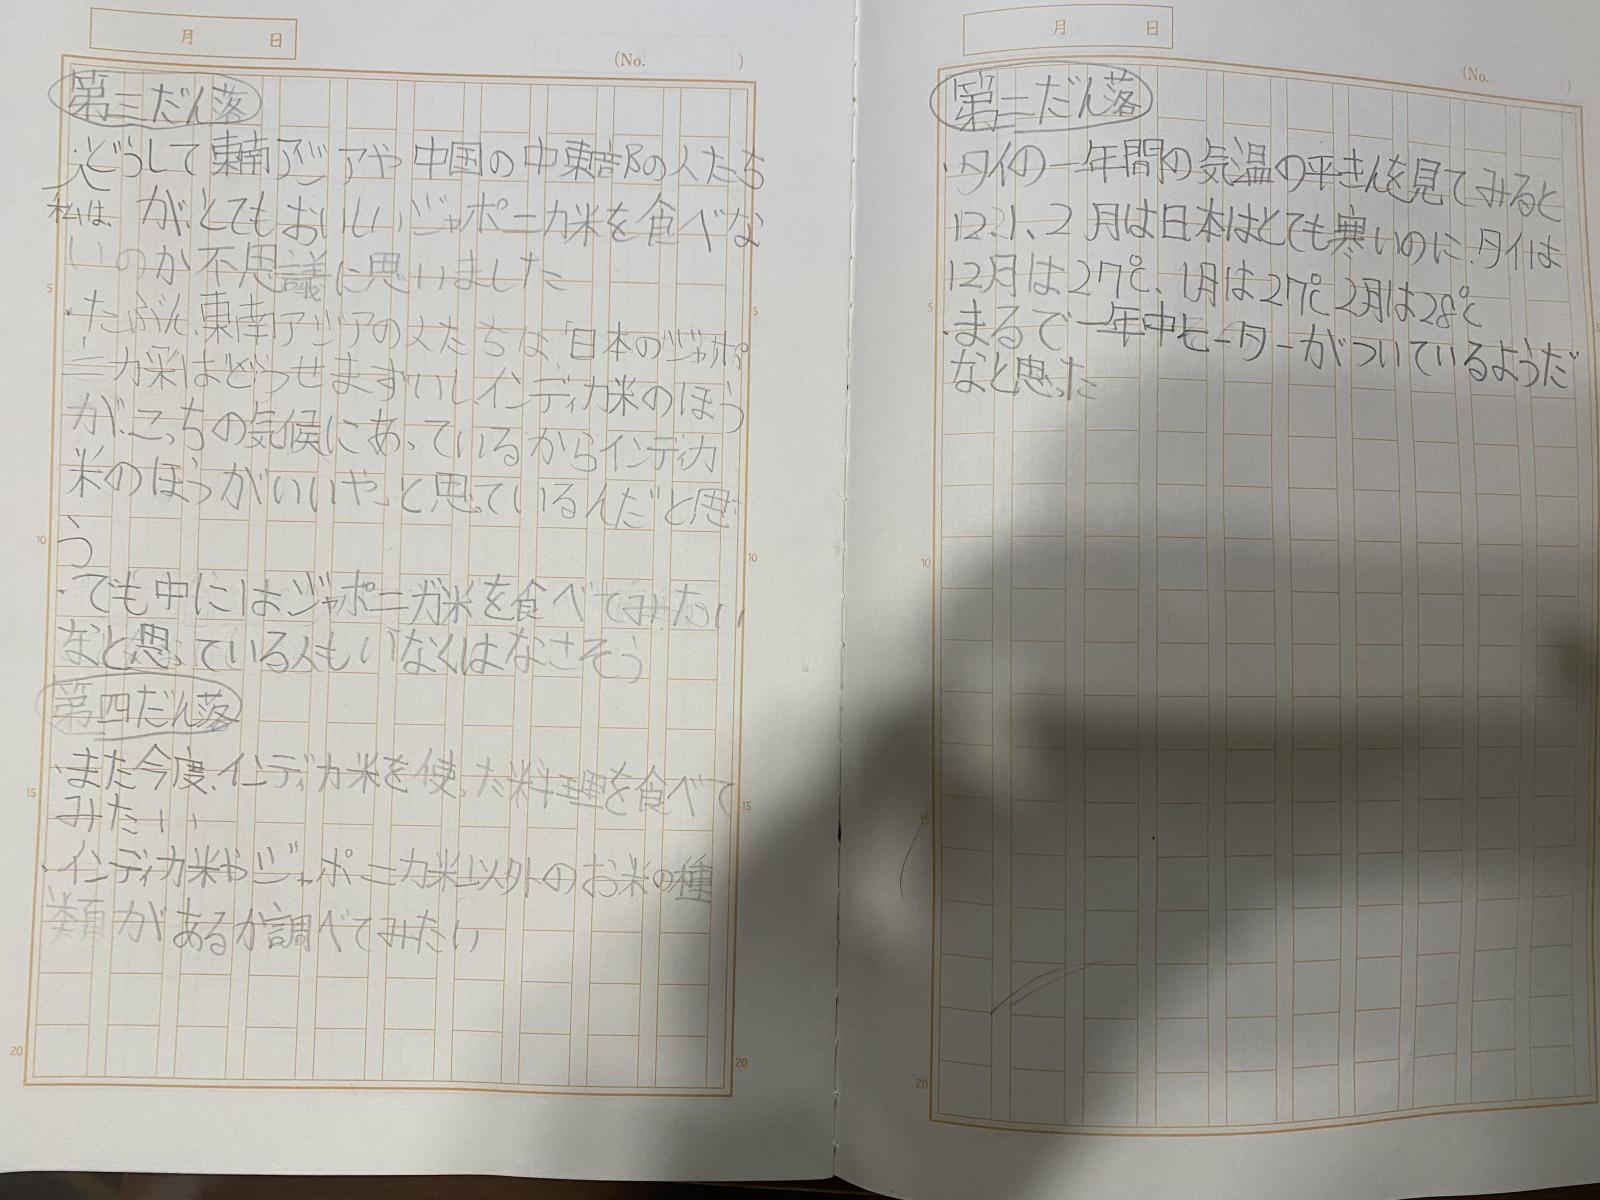 月 日
(No. )
第三だん落
・どうして東南アジアや中国の中東部の人たち
私は がとてもおいしいジャポニカ米を食べな
いのか不思議に思いました
・たぶん、東南アジアの人たちは、「日本のジャポ
ニカ米はどうせまずいしインディカ米のほう
が、こっちの気候にあっているからインディカ
米のほうがいいや。」と思っているんだと思
う
・でも中にはジャポニカ米を食べてみたい
なと思っている人もいなくはなさそう
第四だん落
・また今度、インディカ米を使った料理を食べて
みたい
・インディカ米やジャポニカ米以外のお米の種
類があるか調べてみたい
5
10
15
20
5
10
15
20
月 日
(No. )
第二だん落
・タイの一年間の気温の平きんを見てみると
12、1、2月は日本はとても寒いのに、タイは
12月は27℃、1月は27℃ 2月は28℃
・まるで一年中ヒーターがついているようだ
なと思った
5
10
15
20